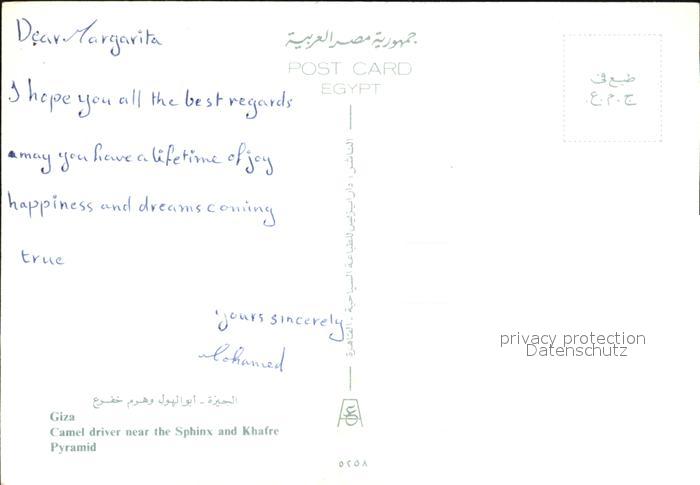 Dear Margarita
I hope you all the best regards
may you have a lifetime of joy
happiness and dreams coming
true
yours sincerely
Mohamed
الجيزة - أبو الهول وهرم خفرع
Giza
Camel driver near the Sphinx and Khafre
Pyramid
جمهورية مصر العربية
POST CARD
EGYPT
الناشر : دار ايزيس للطباعة السياحية - القاهرة
٥٢٥٨
طبع فى
ج.م.ع.
privacy protection
Datenschutz